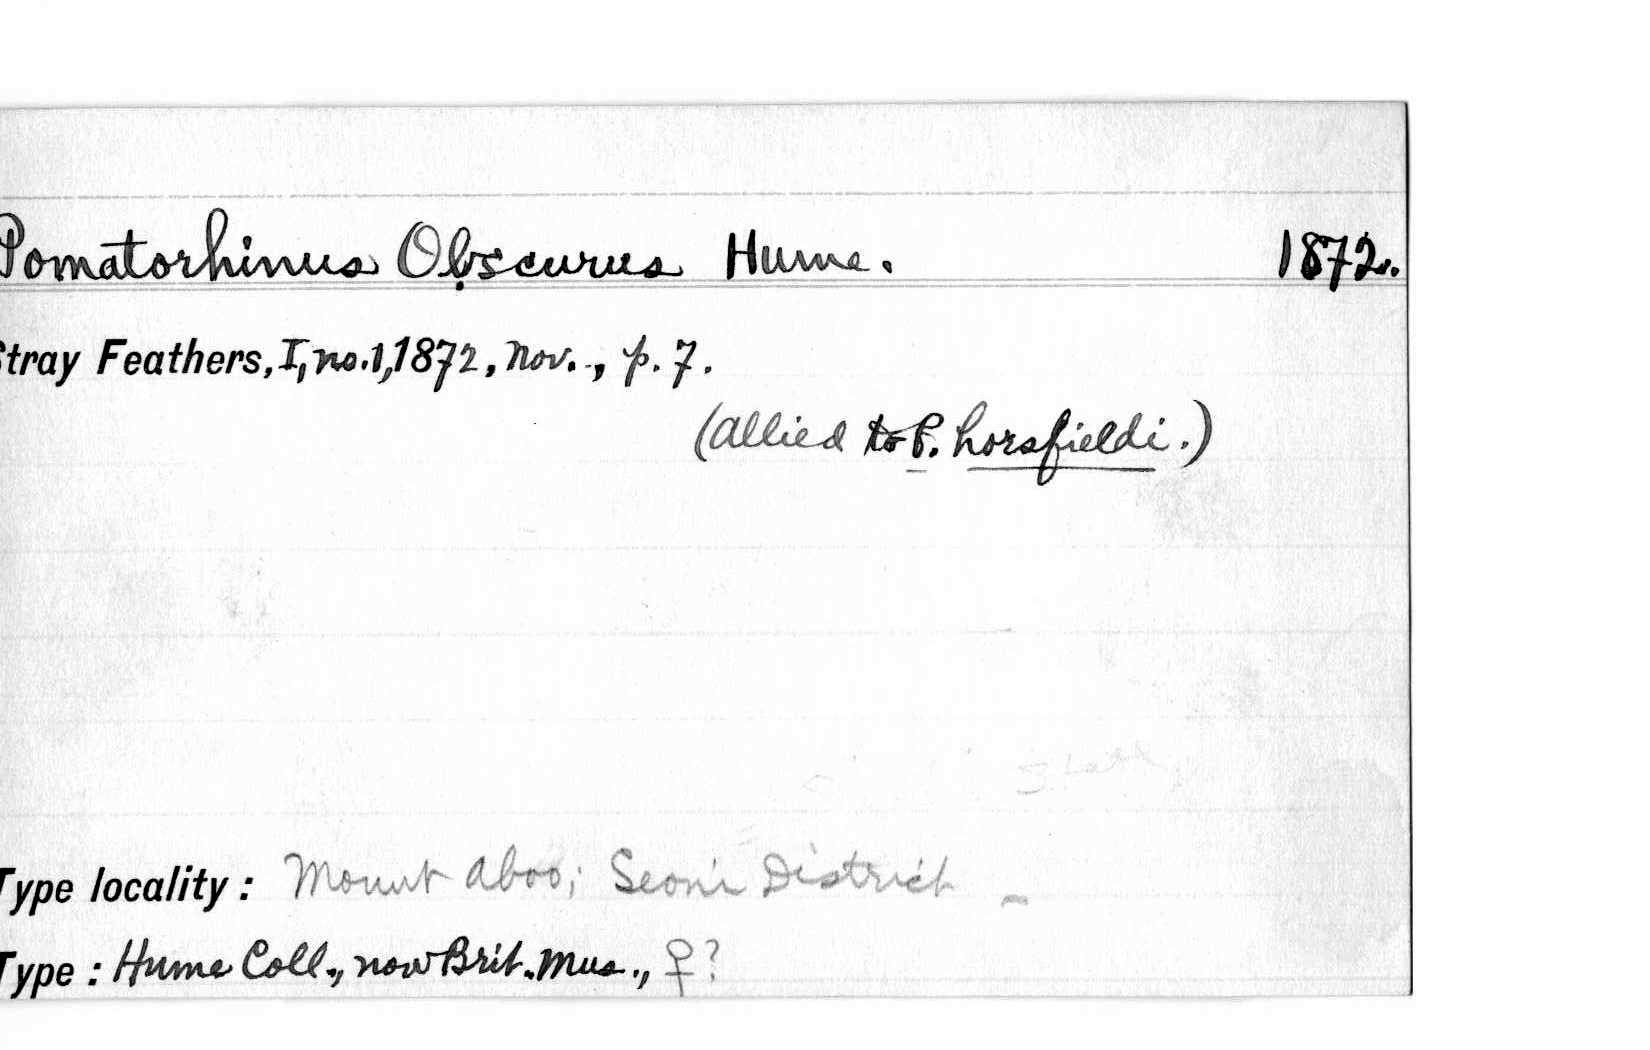 Pomatorhinus Obscurus Hume. 1872.
Stray Feathers, I, no.1, 1872, Nov., p. 7.
(allied to P. horsfieldi.)
Type locality: Mount Aboo; Seoni District –
Type: Hume Coll., now Brit. Mus., ♀?